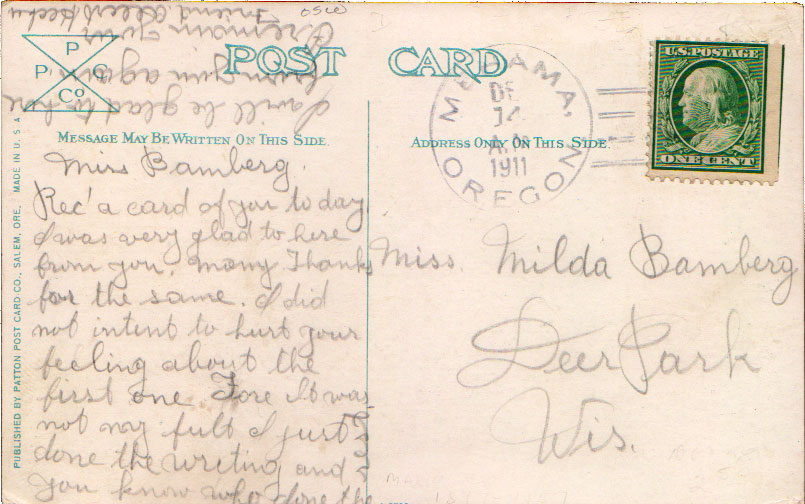 POST CARD
P
P C
Co
MESSAGE MAY BE WRITTEN ON THIS SIDE.
ADDRESS ONLY ON THIS SIDE.
PUBLISHED BY PATTON POST CARD CO., SALEM, ORE. MADE IN U.S.A
MEHAMA,
DE
14
A.M
1911
OREGON
U.S. POSTAGE
ONE CENT
Miss Bamberg.
Rec'd a card of you to day.
I was very glad to here
from you. Many Thanks
for the same. I did
not intent to hurt your
feeling about the
first one. Fore It was
not my fult I just
done the writing and
you know who done the
I will be glad to here
from you again.
I remain your
Friend
Miss. Milda Bamberg
Deer Park
Wis.